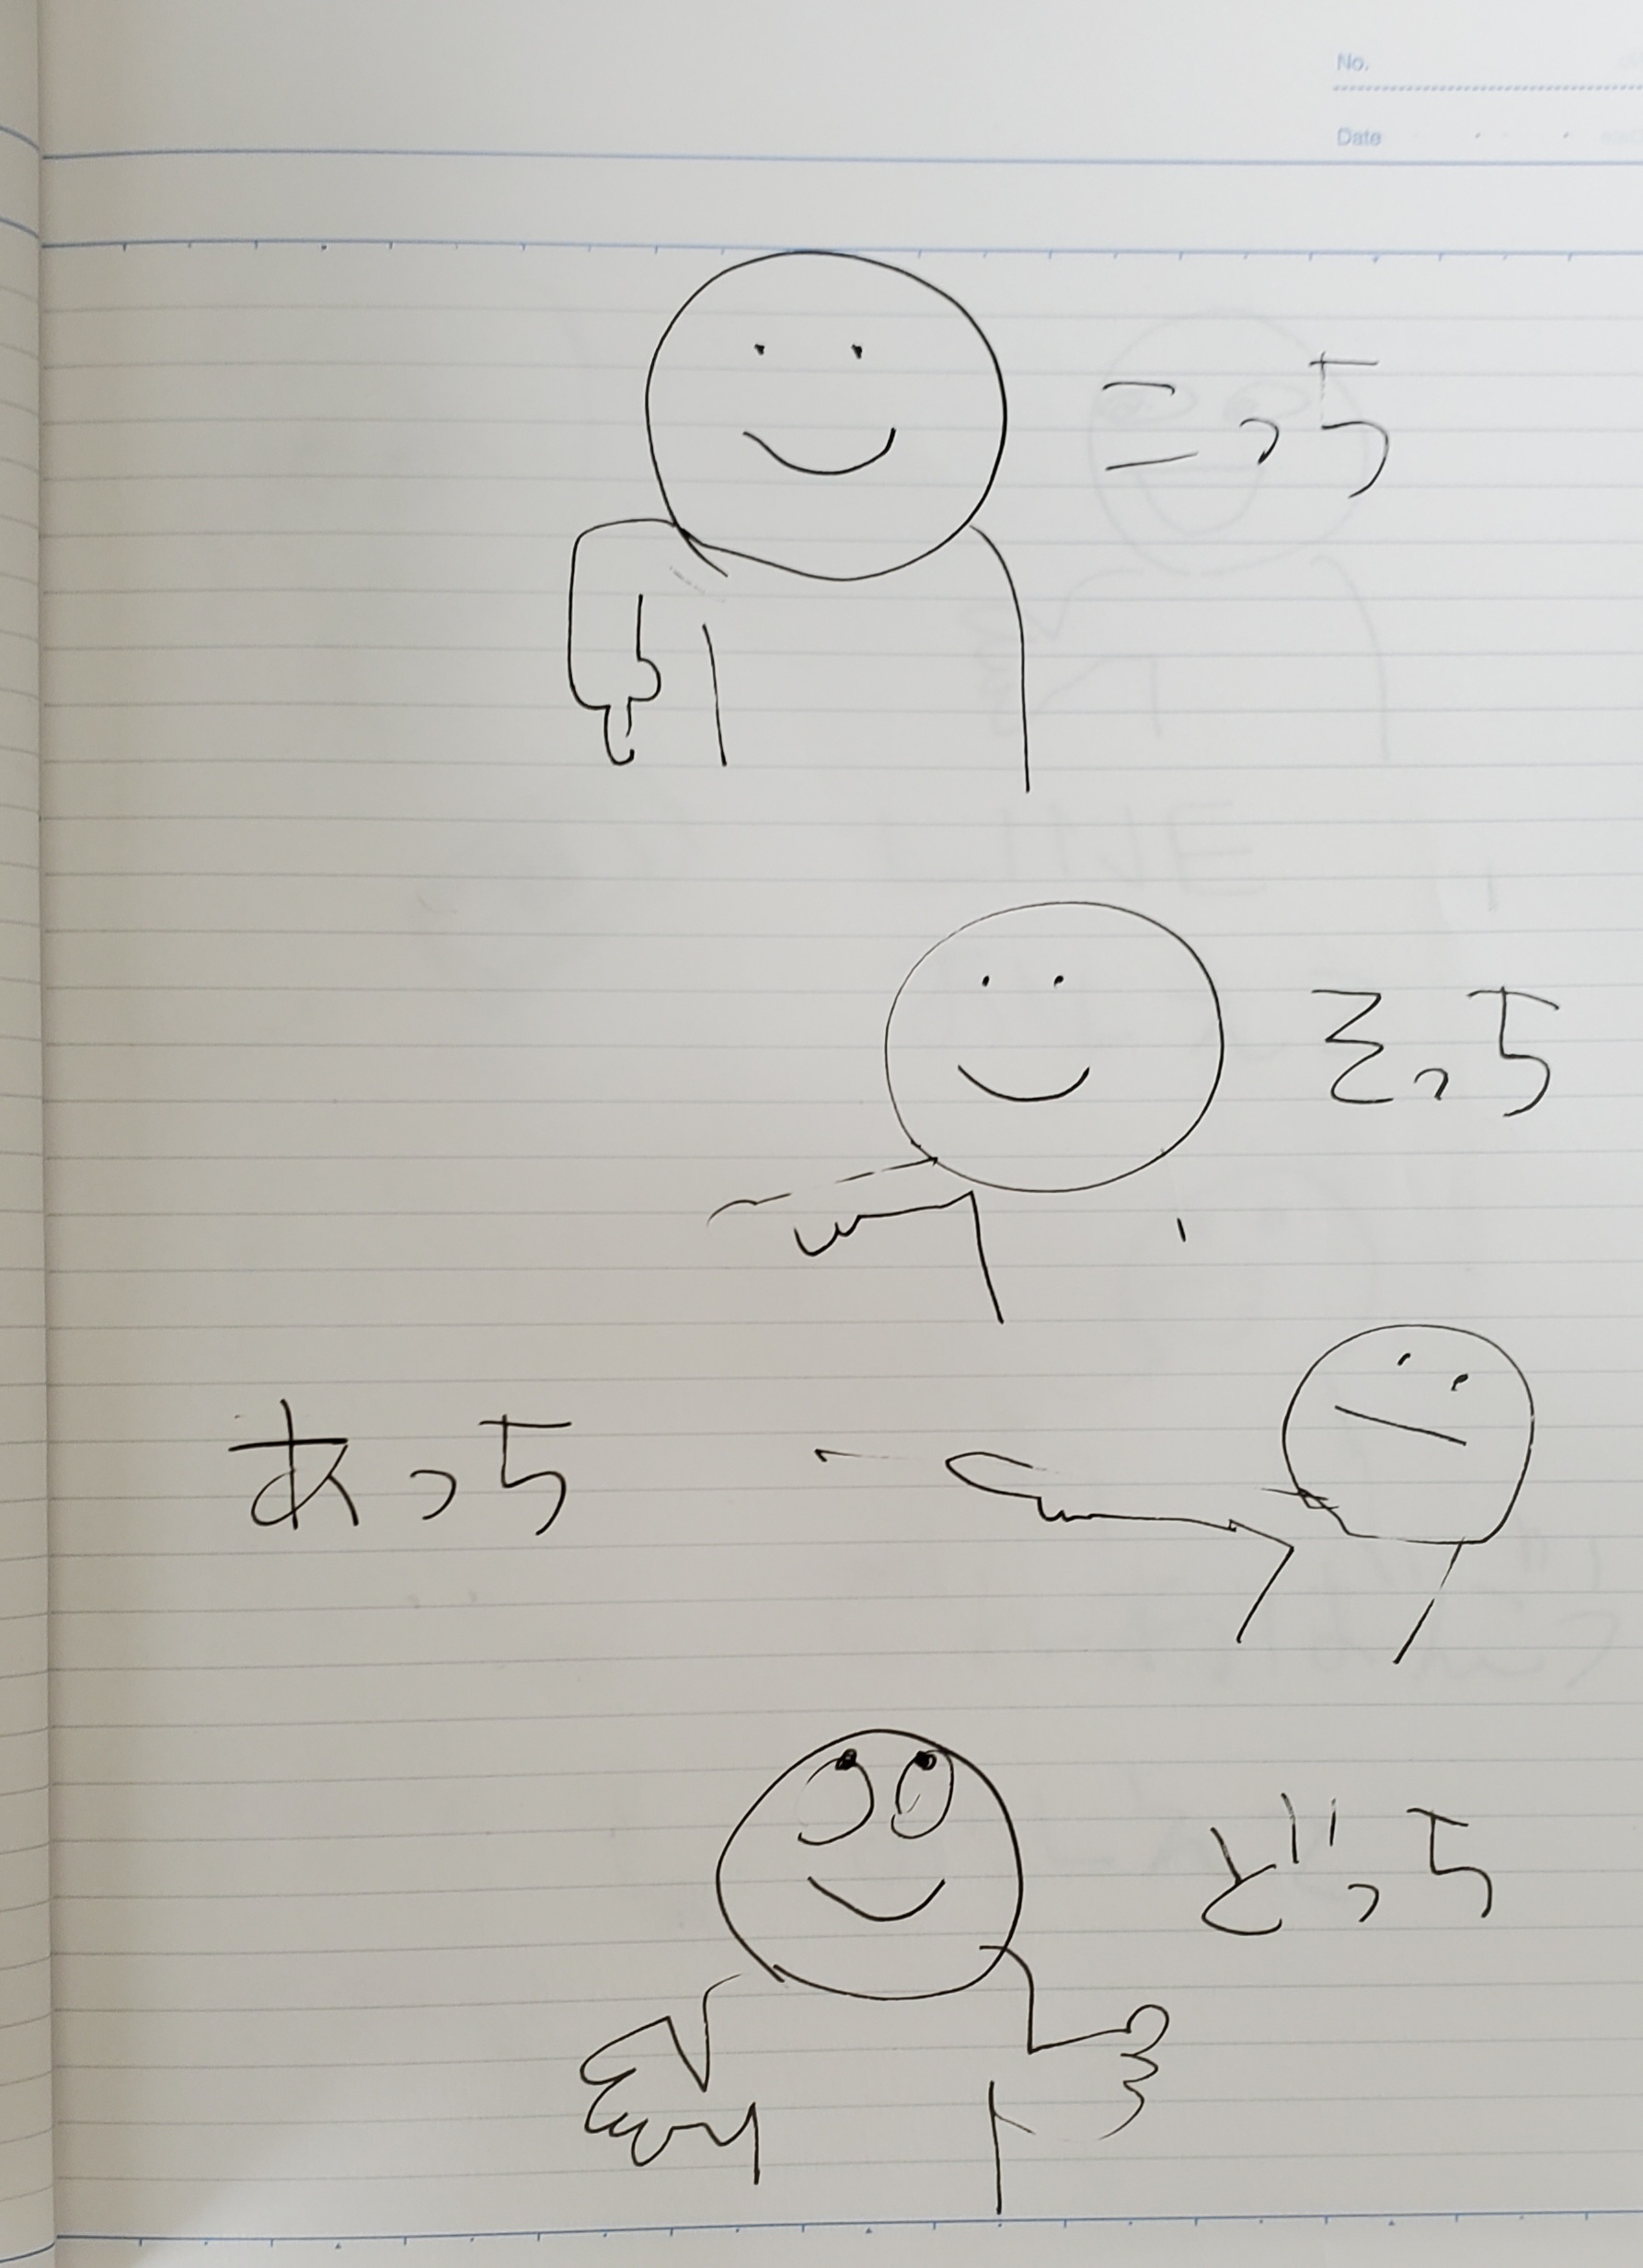 No.
Date
こっち
そっち
あっち
どっち